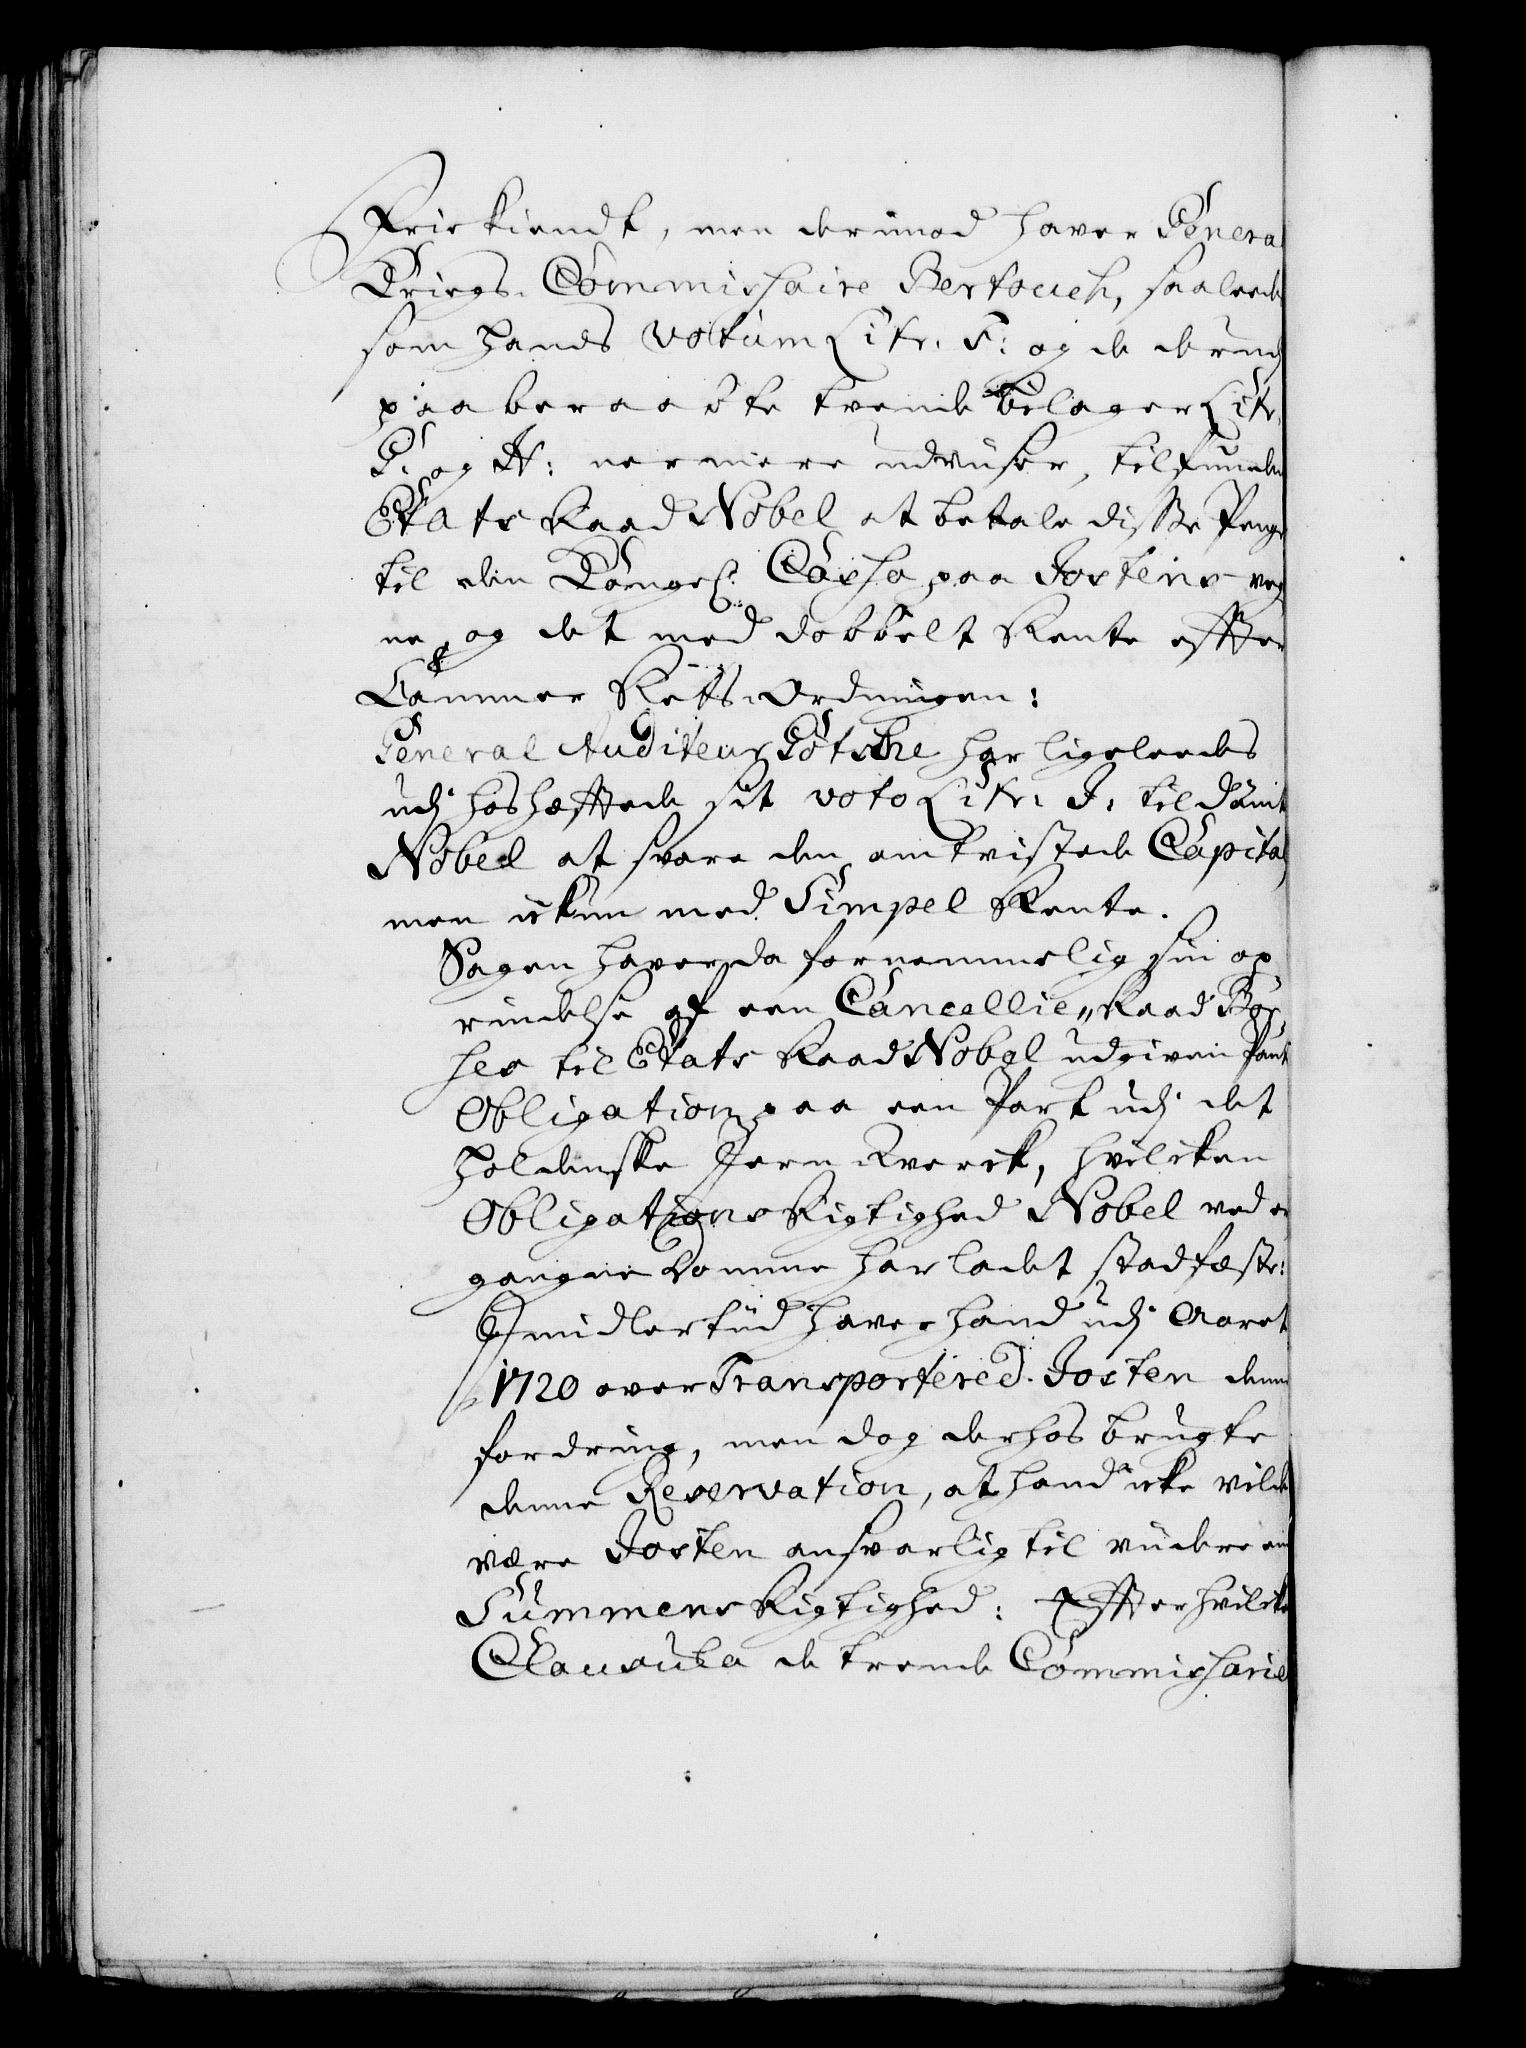 Friekiendt, men derimod haver Genera
Kriegs-Commishaire Bertouch, saaleede
som hands Votum Litr. F: og de derudj
paaberaabte tvende bilager Litr.
G. og H: nermere udviiser, tilfunden
Etats Raad Nobel at betale disse Penge
til den Kongel. Cassa paa Jostens veg
ne, og det med dobbelt Rente effter
Cammer Rets-Ordningen:
General Auditeur Götsche har ligeleedes
udj hoshæfftede sit voto Litr. J. tildömt
Nobel at svare den omtvistede Capital
men ickun med Simpel Rente.
Sagen haver da fornemmelig sin op
rindelse af een Cancellie„Raad Bör„
hes til Etats Raad Nobel udgiven Pant
Obligation paa een Part udj det
Holdenske Jern Verck, hvilcken
Obligations Rigtighed Nobel ved er
gangne Domme har ladet stadfæste:
Jmidlertiid haver hand udj Aaret
1720 over Transportered Josten denne
fordring, men dog derhos brugte
denne Reservation, at hand icke vilde
være Josten ansvarlig til viidere end
Summens Rigtighed: Effter hvilcke
Clausula de trende Commisharie